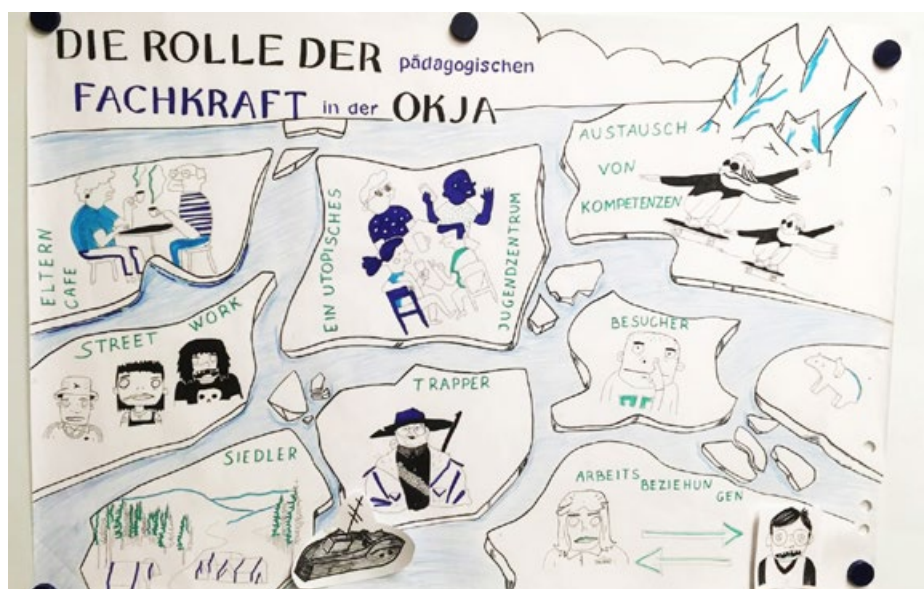 DIE ROLLE DER pädagogischen
FACHKRAFT in der OKJA
ELTERN
CAFE
EIN UTOPISCHES
JUGENDZENTRUM
AUSTAUSCH
VON
KOMPETENZEN
STREET WORK
TRAPPER
BESUCHER
SIEDLER
ARBEITS
BEZIEHUN
GEN